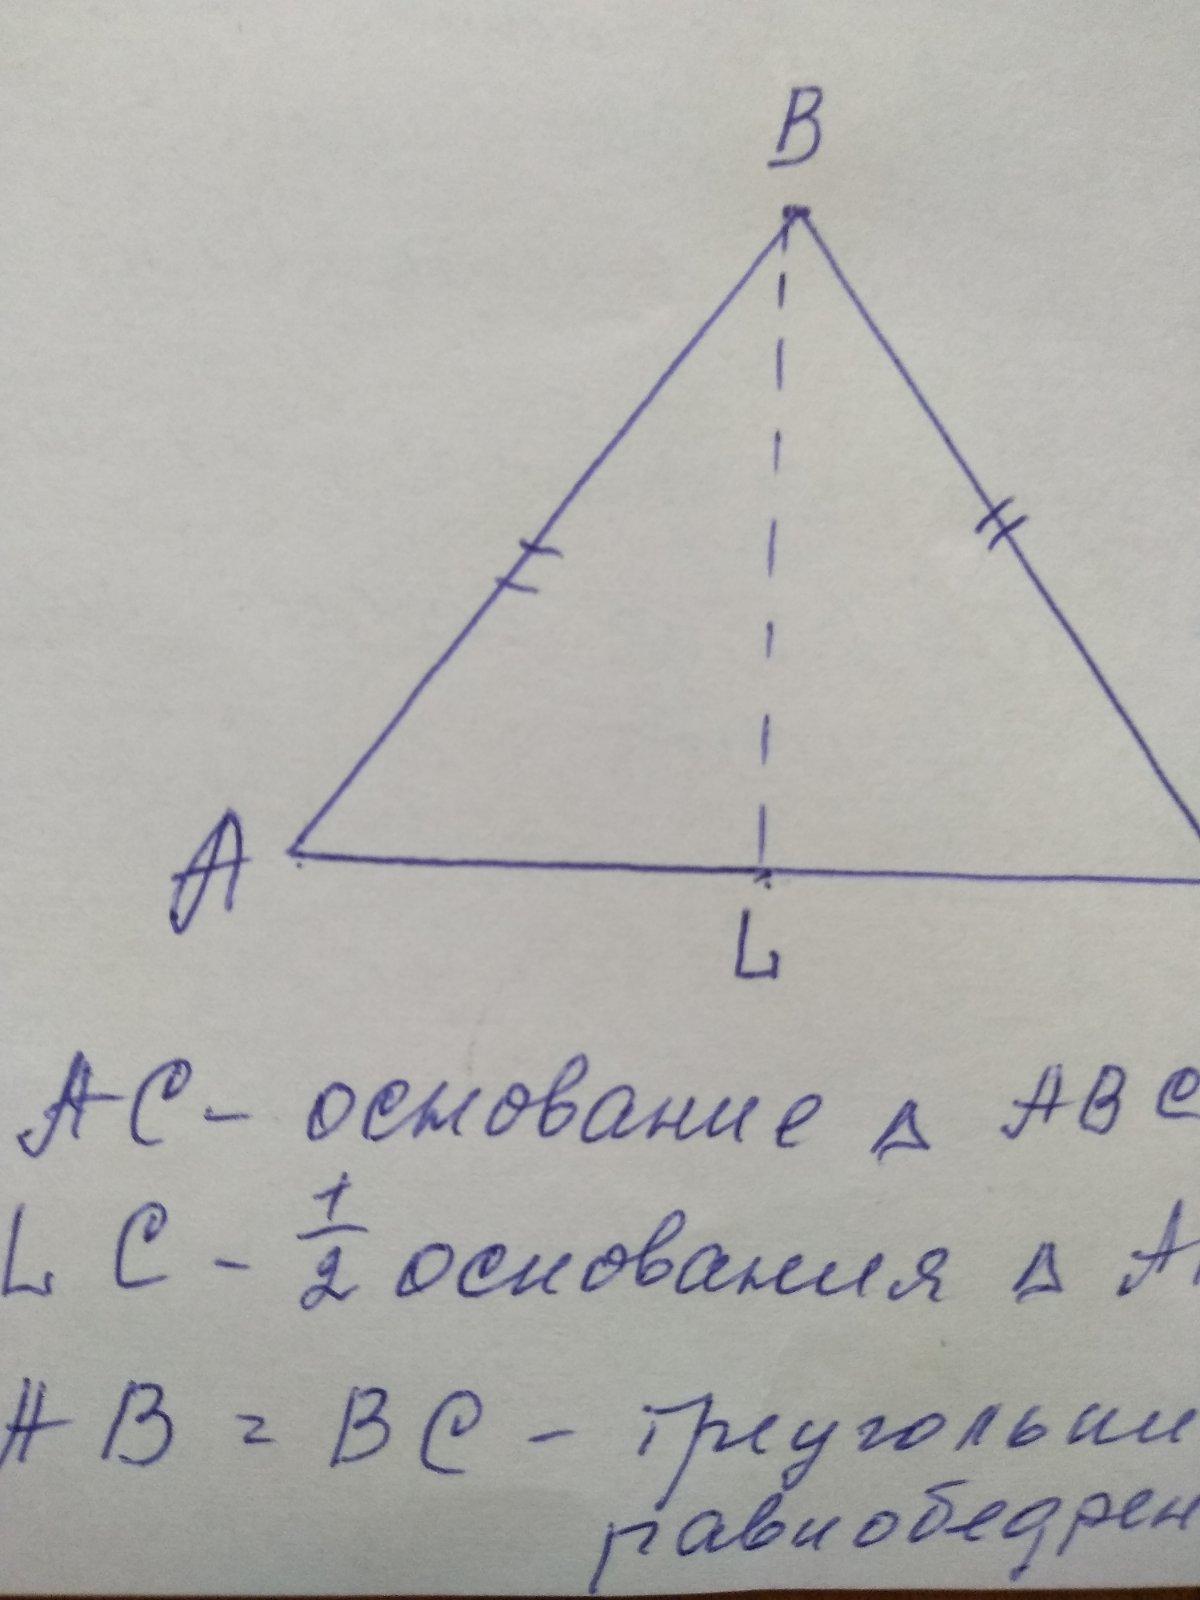 B
A
L
AC - основание Δ ABC
LC - 1/2 основания Δ A
AB = BC - треугольни
равнобедрен